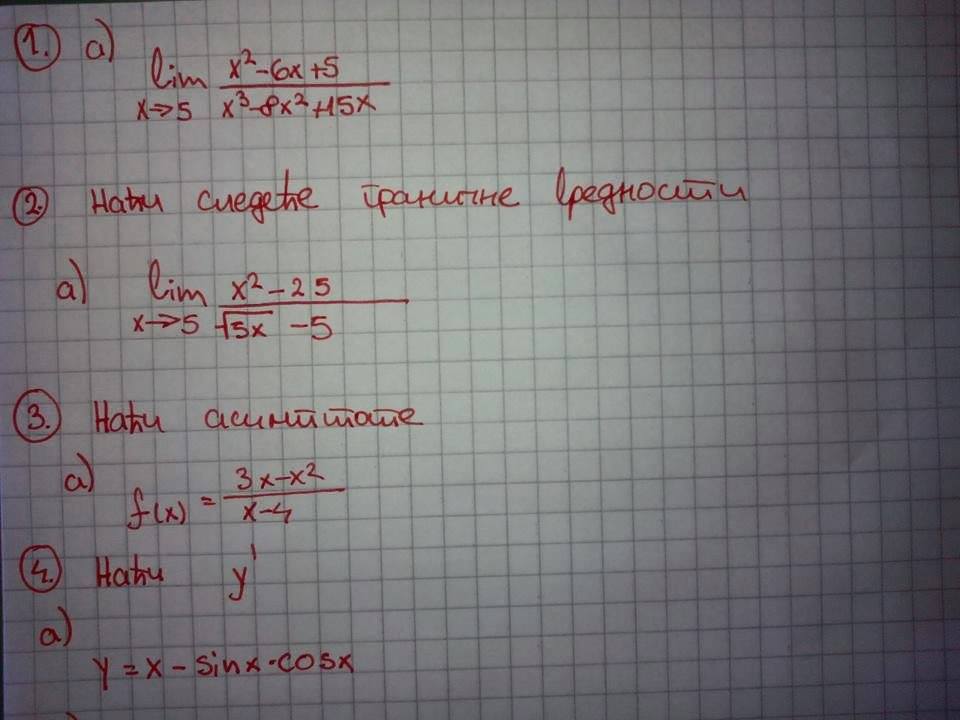 1. a) lim x→5 (x²-6x+5)/(x³-8x²+15x)
2. Наћи следеће граничне вредности
a) lim x→5 (x²-25)/(√5x -5)
3. Наћи асимптоте
a) f(x) = (3x-x²)/(x-4)
4. Наћи y'
a)
y = x - sinx·cosx